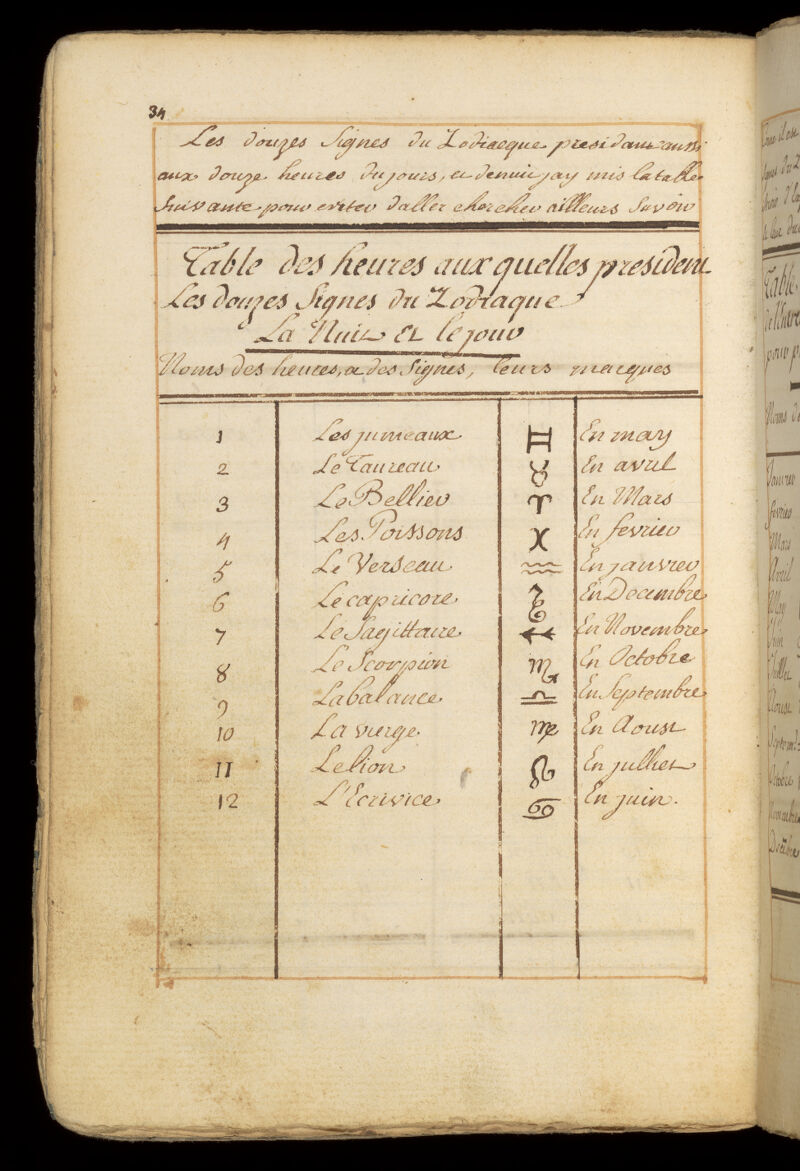 34
Les douzes Signes du Zodiaeque president aussi
aux douze heures du jours, et de nuit jay mis la table
Suivante pour eviter d'aller chercher ailleurs Savoir
Table des heures aux quelles president
Les douzes Signes du Zodiaque
La Nuit et le jour
Noms des heures, et des Signes, leurs marques
1 Les jumeaux ♊ En may
2 Le Taureau ♉ En avril
3 Le Bellier ♈ En Mars
4 Les Poissons ♓ En fevrier
5 Le Verseau ♒ En janvrer
6 Le capricore ♑ En Decembre
7 Le Sagittaire ♐ En Novembre
8 Le Scorpion ♏ En Octobre
9 La balance ♎ En Septembre
10 La vierge ♍ En Aoust
11 Le lion ♌ En julliet
12 L'Ecrivice ♋ En juin.